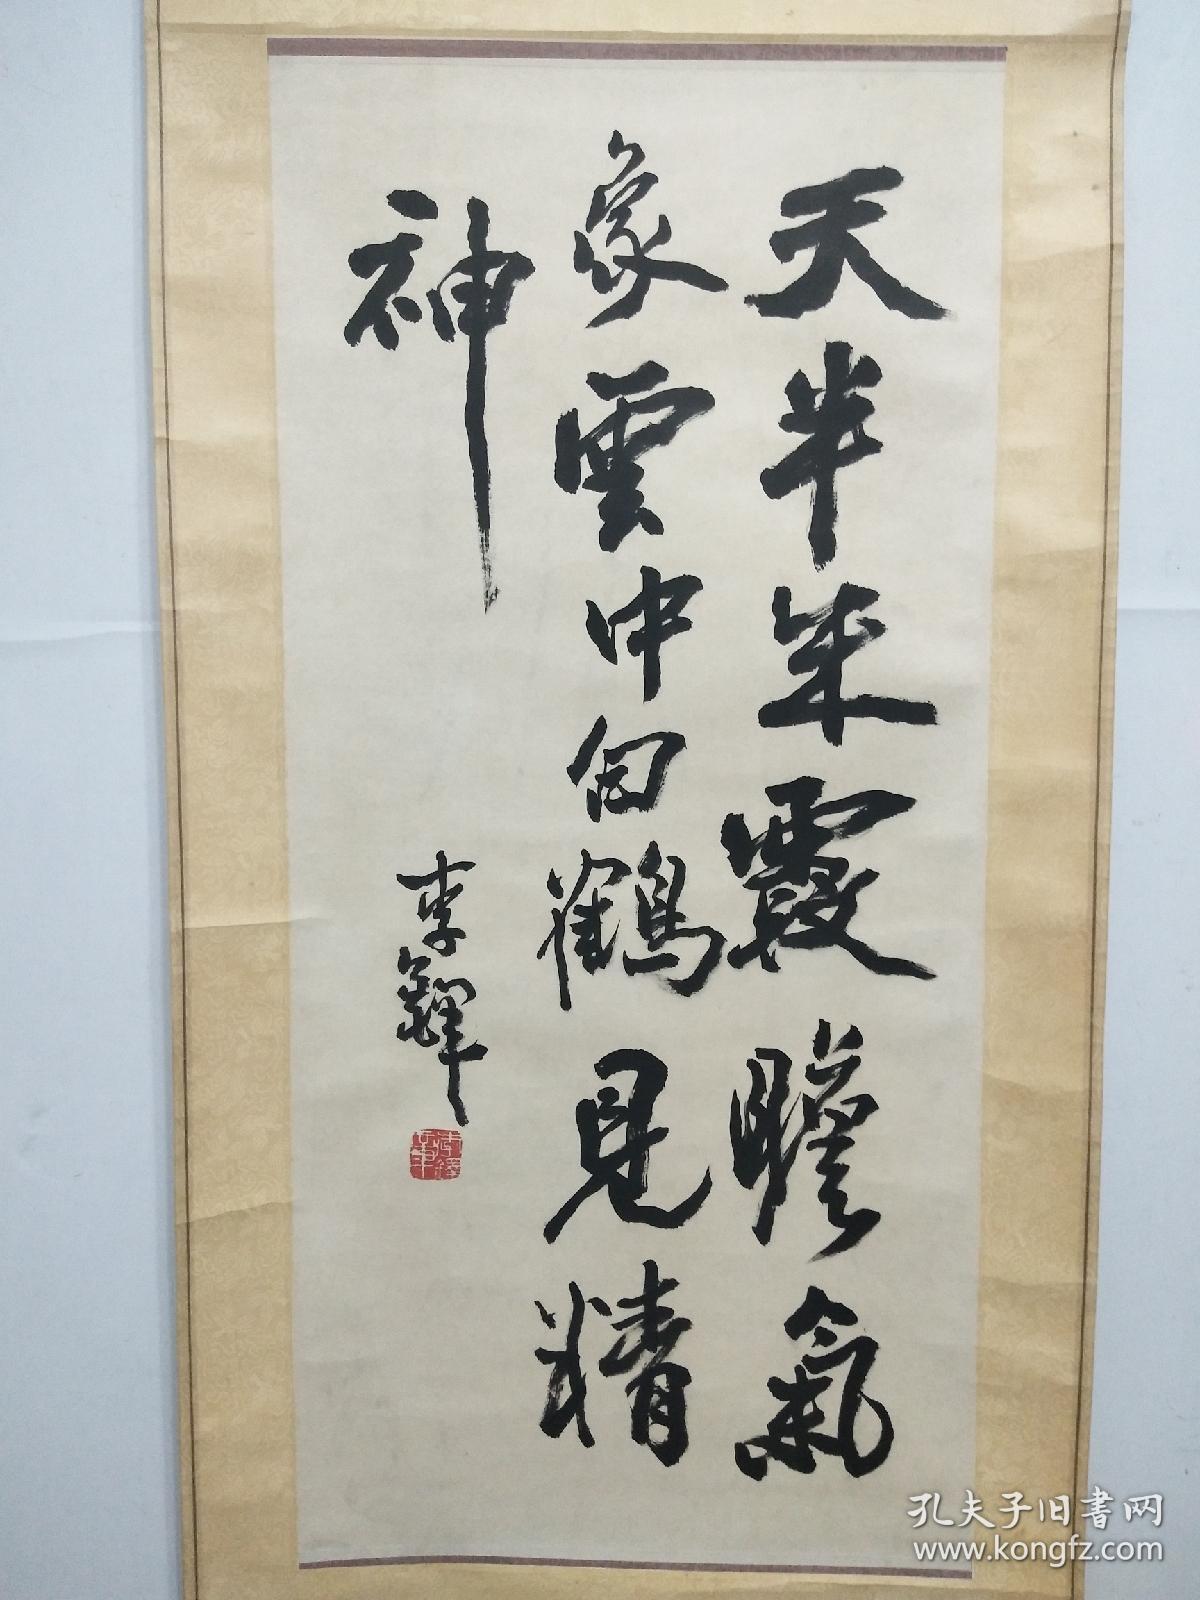 天半朱霞瞻氣
象雲中白鶴見精
神
李鐸
李鐸
孔夫子旧书网
www.kongfz.com